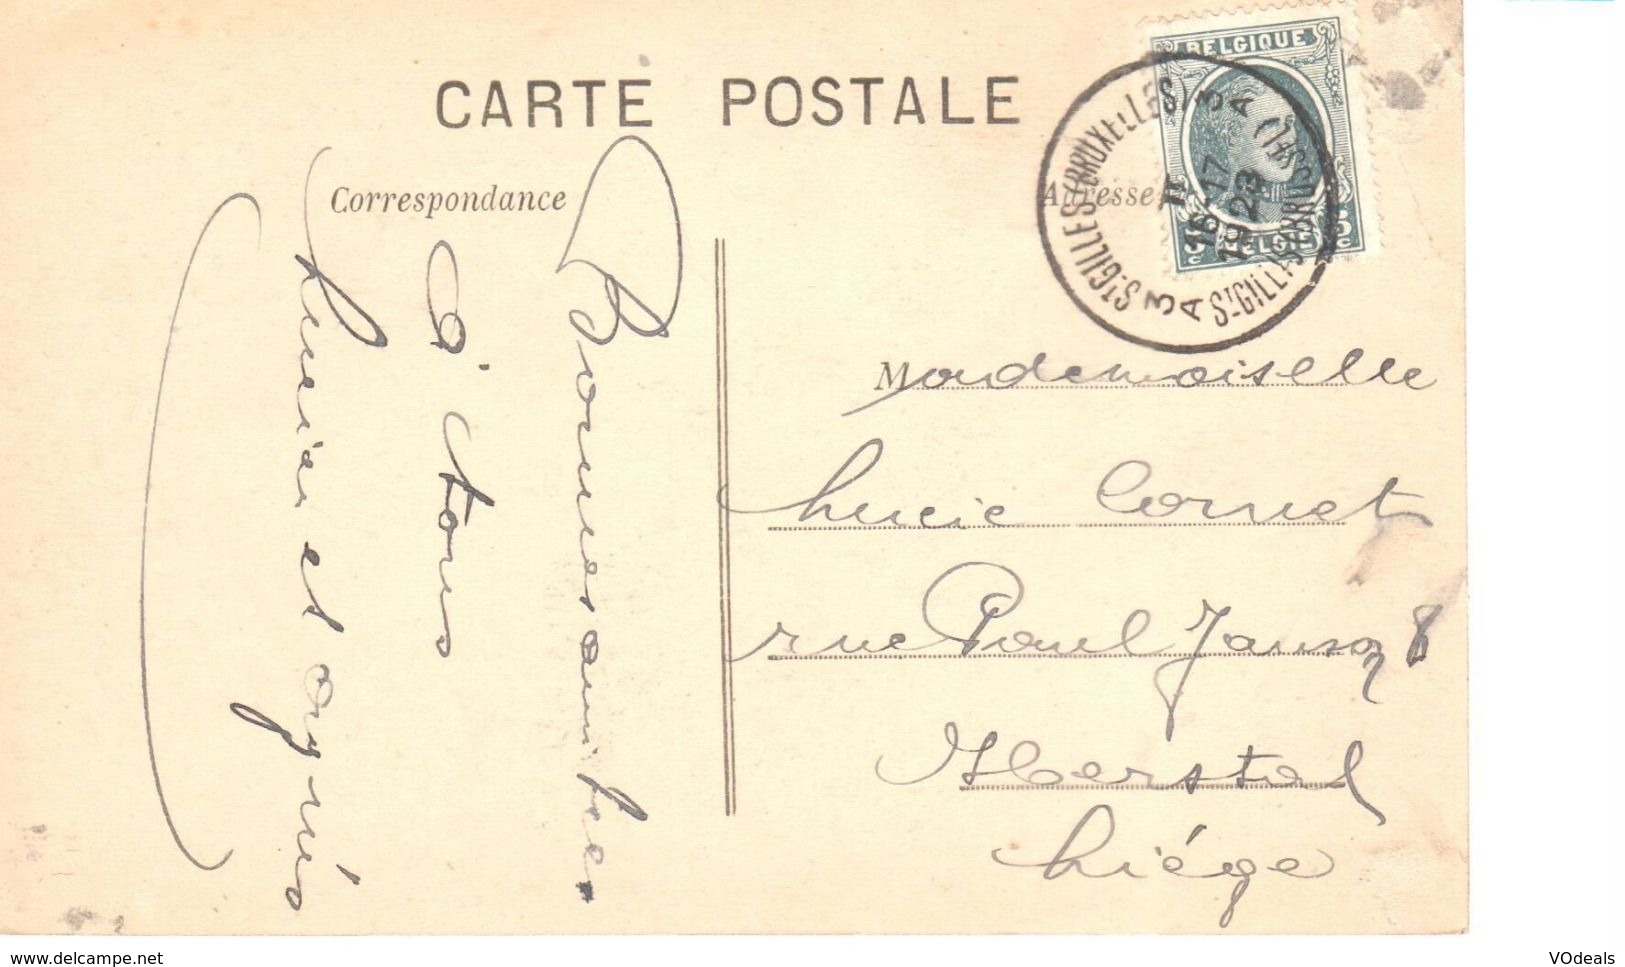 CARTE POSTALE
Correspondance
Adresse
BELGIQUE
5c BELGIË 5c
ST GILLES (BRUXELLES)
3 A
16-17
1923
ST GILLIS (BRUSSEL)
3 A
Bonnes amitiés
à tous
Lucien et Agnès
Mademoiselle
Lucie Cornet
rue Paul Janson 8
Herstal
Liége
www.delcampe.net
VOdeals